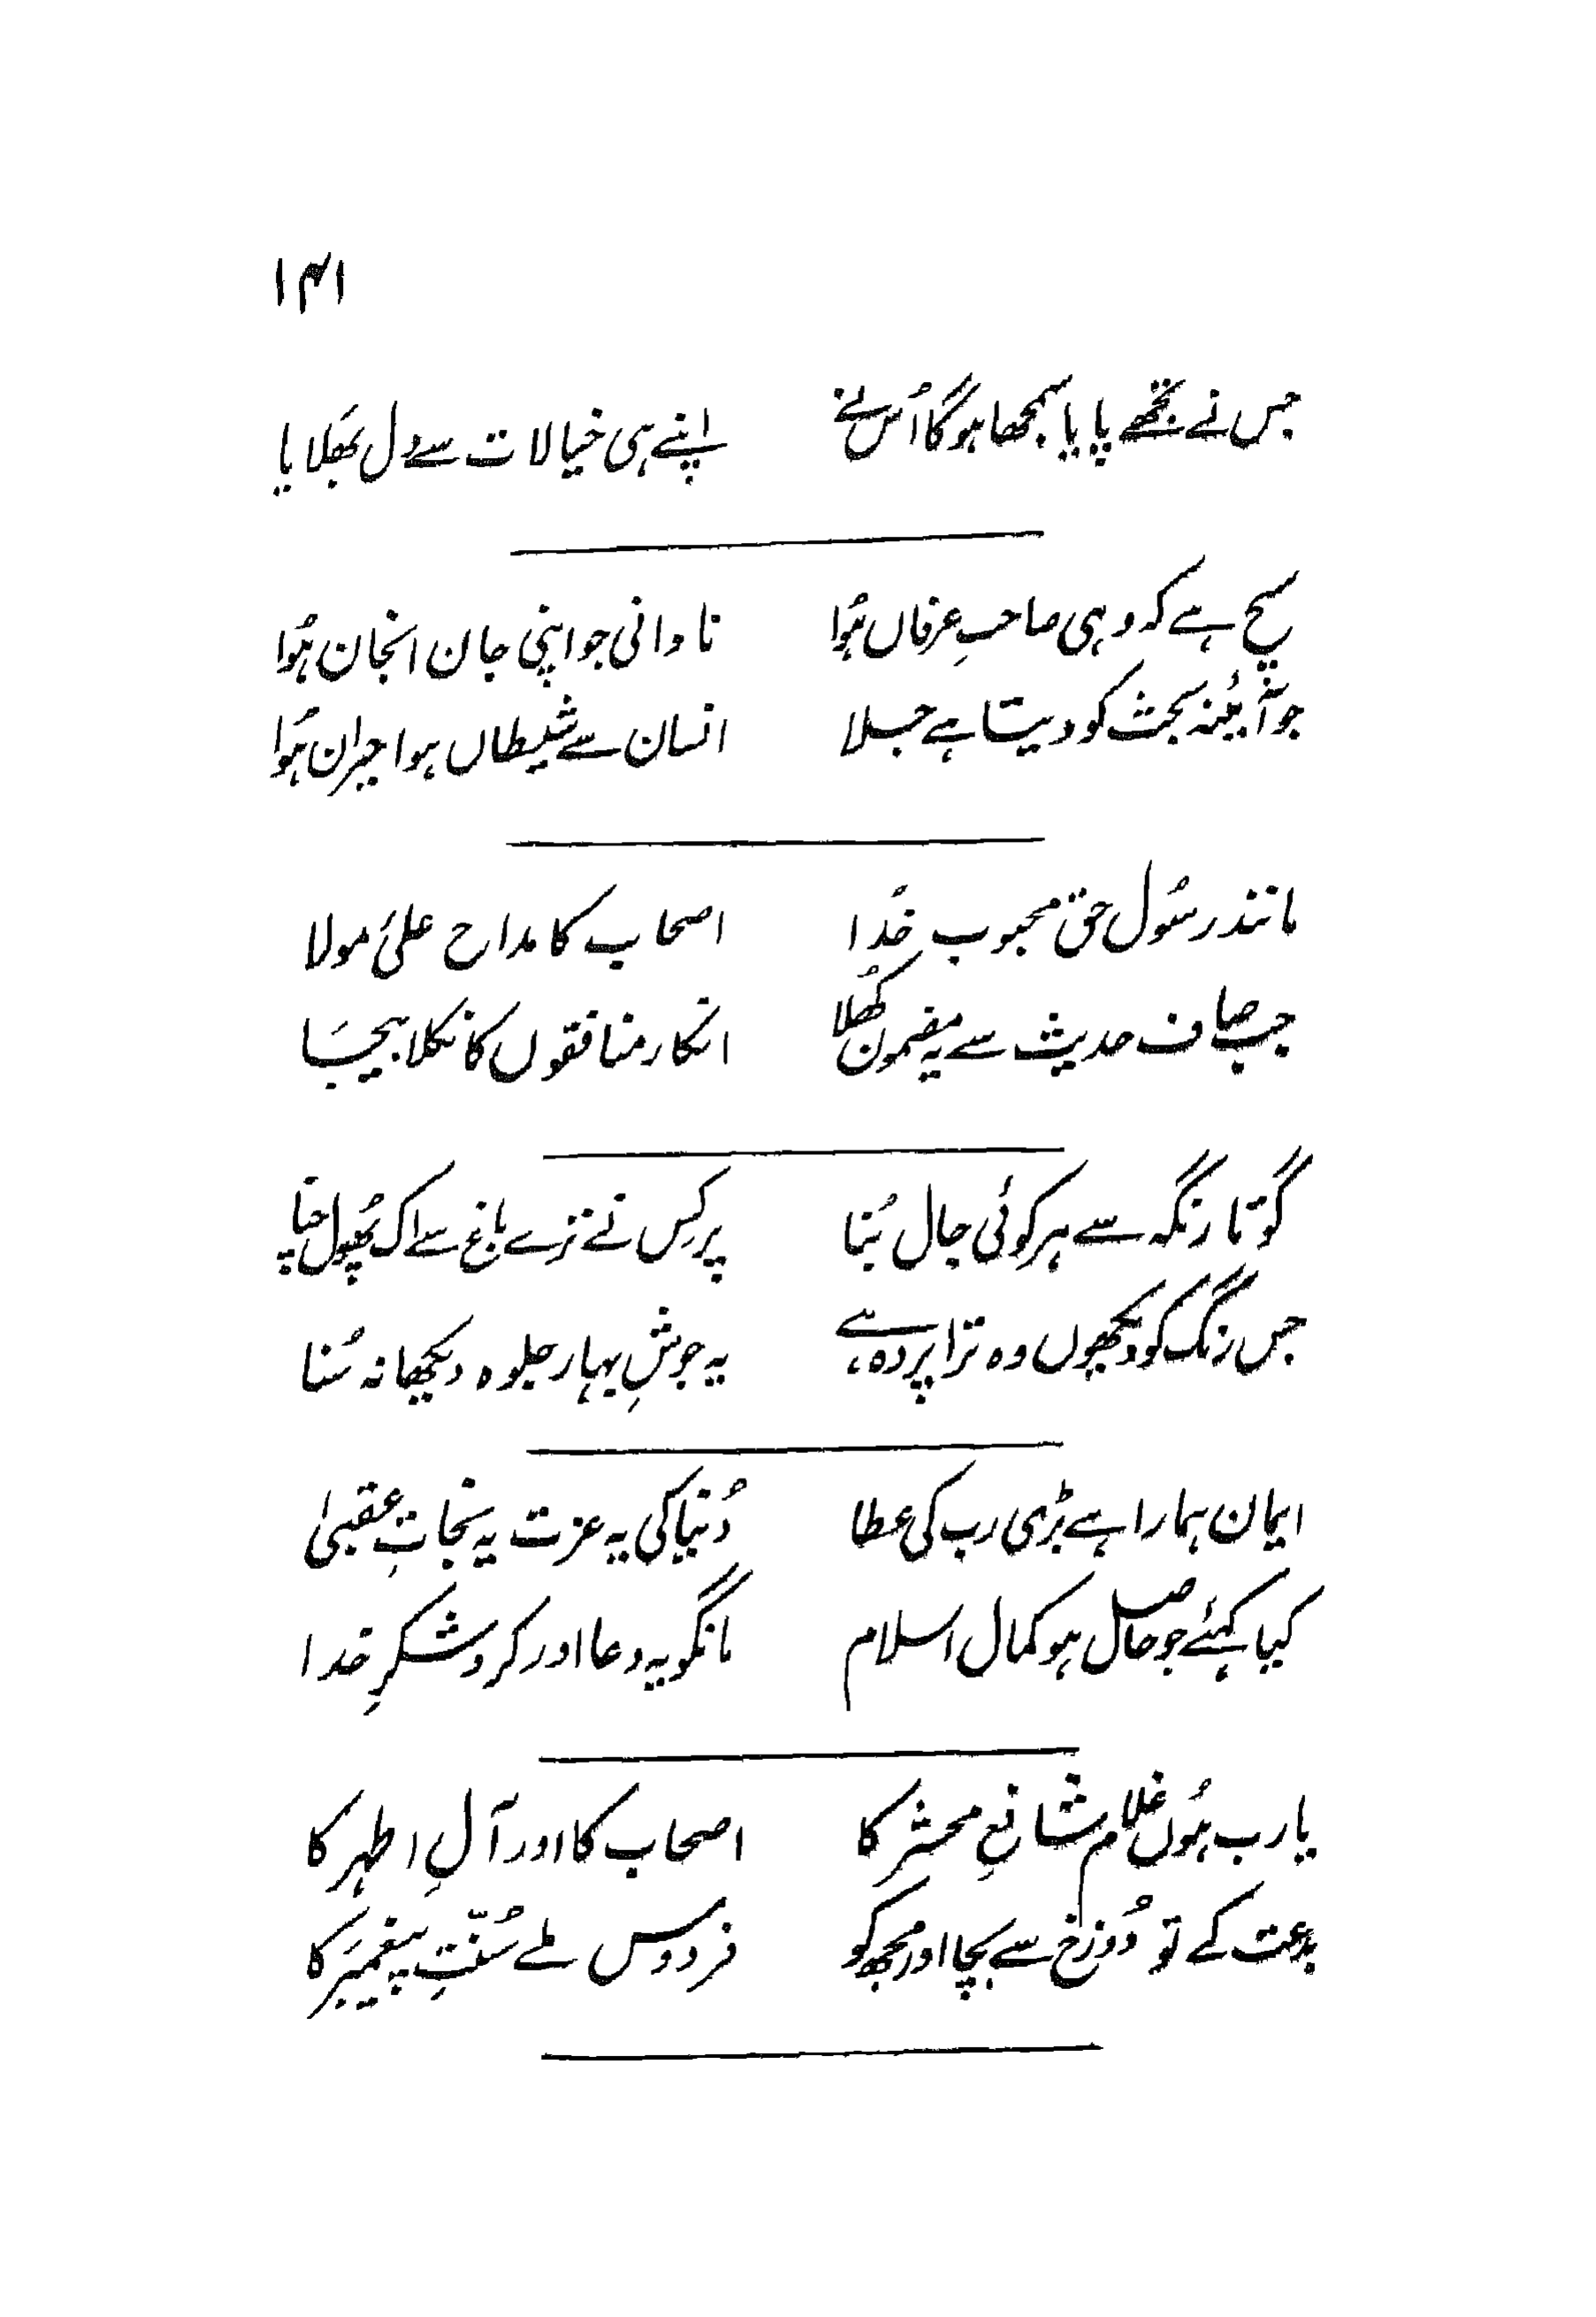 ۱۴۱
جس نے تجھے پایا سمجھا ہوگا اُس نے اپنے ہی خیالات سے دل بَھلایا
سچ ہے کہ وہی صاحبِ عرفاں ہُوا نادانی جو اپنی جان انجان ہُوا
جو آئینۂ بحث کو دیتا ہے جلا انسان سے شیطاں ہوا حیران ہُوا
مانند رسُول حق محبوب خُدا اصحاب کا مداح علیؑ مولا
جب صاف حدیث سے یہ مضمون کُھلا انکار منافقوں کا نکلا بیجَا
گو تارِ نگہ سے ہر کوئی جال بُنا پر کِس نے ترے باغ سے اک پُھول چنا
جس رنگ کو دیکھوں وہ ترا پردہ ہے، یہ جوشِ بہار جلوہ دیکھا نہ سُنا
ایمان ہمارا ہے بڑی رب کی عطا دُنیا کی یہ عزت یہ نجاتِ عقبیٰ
کیا کہئے جو حاصل ہو کمال اسلام مانگو یہ دعا اور کرو شکرِ خدا
یا رب ہُوں غلام شافعِ محشر کا اصحاب کا اور آلِ اطہر کا
بدعت کے تو دُوزخ سے بچا اور مجھ کو فردوس ملے سُنّتِ پیغمبَر کا